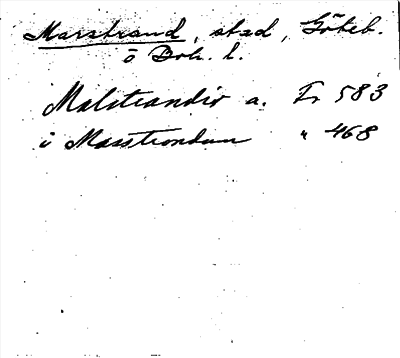 Marstrand, stad, Göteb.
o Boh. l.
Malstrandir a. Fr 583
i Masstrondum " 468